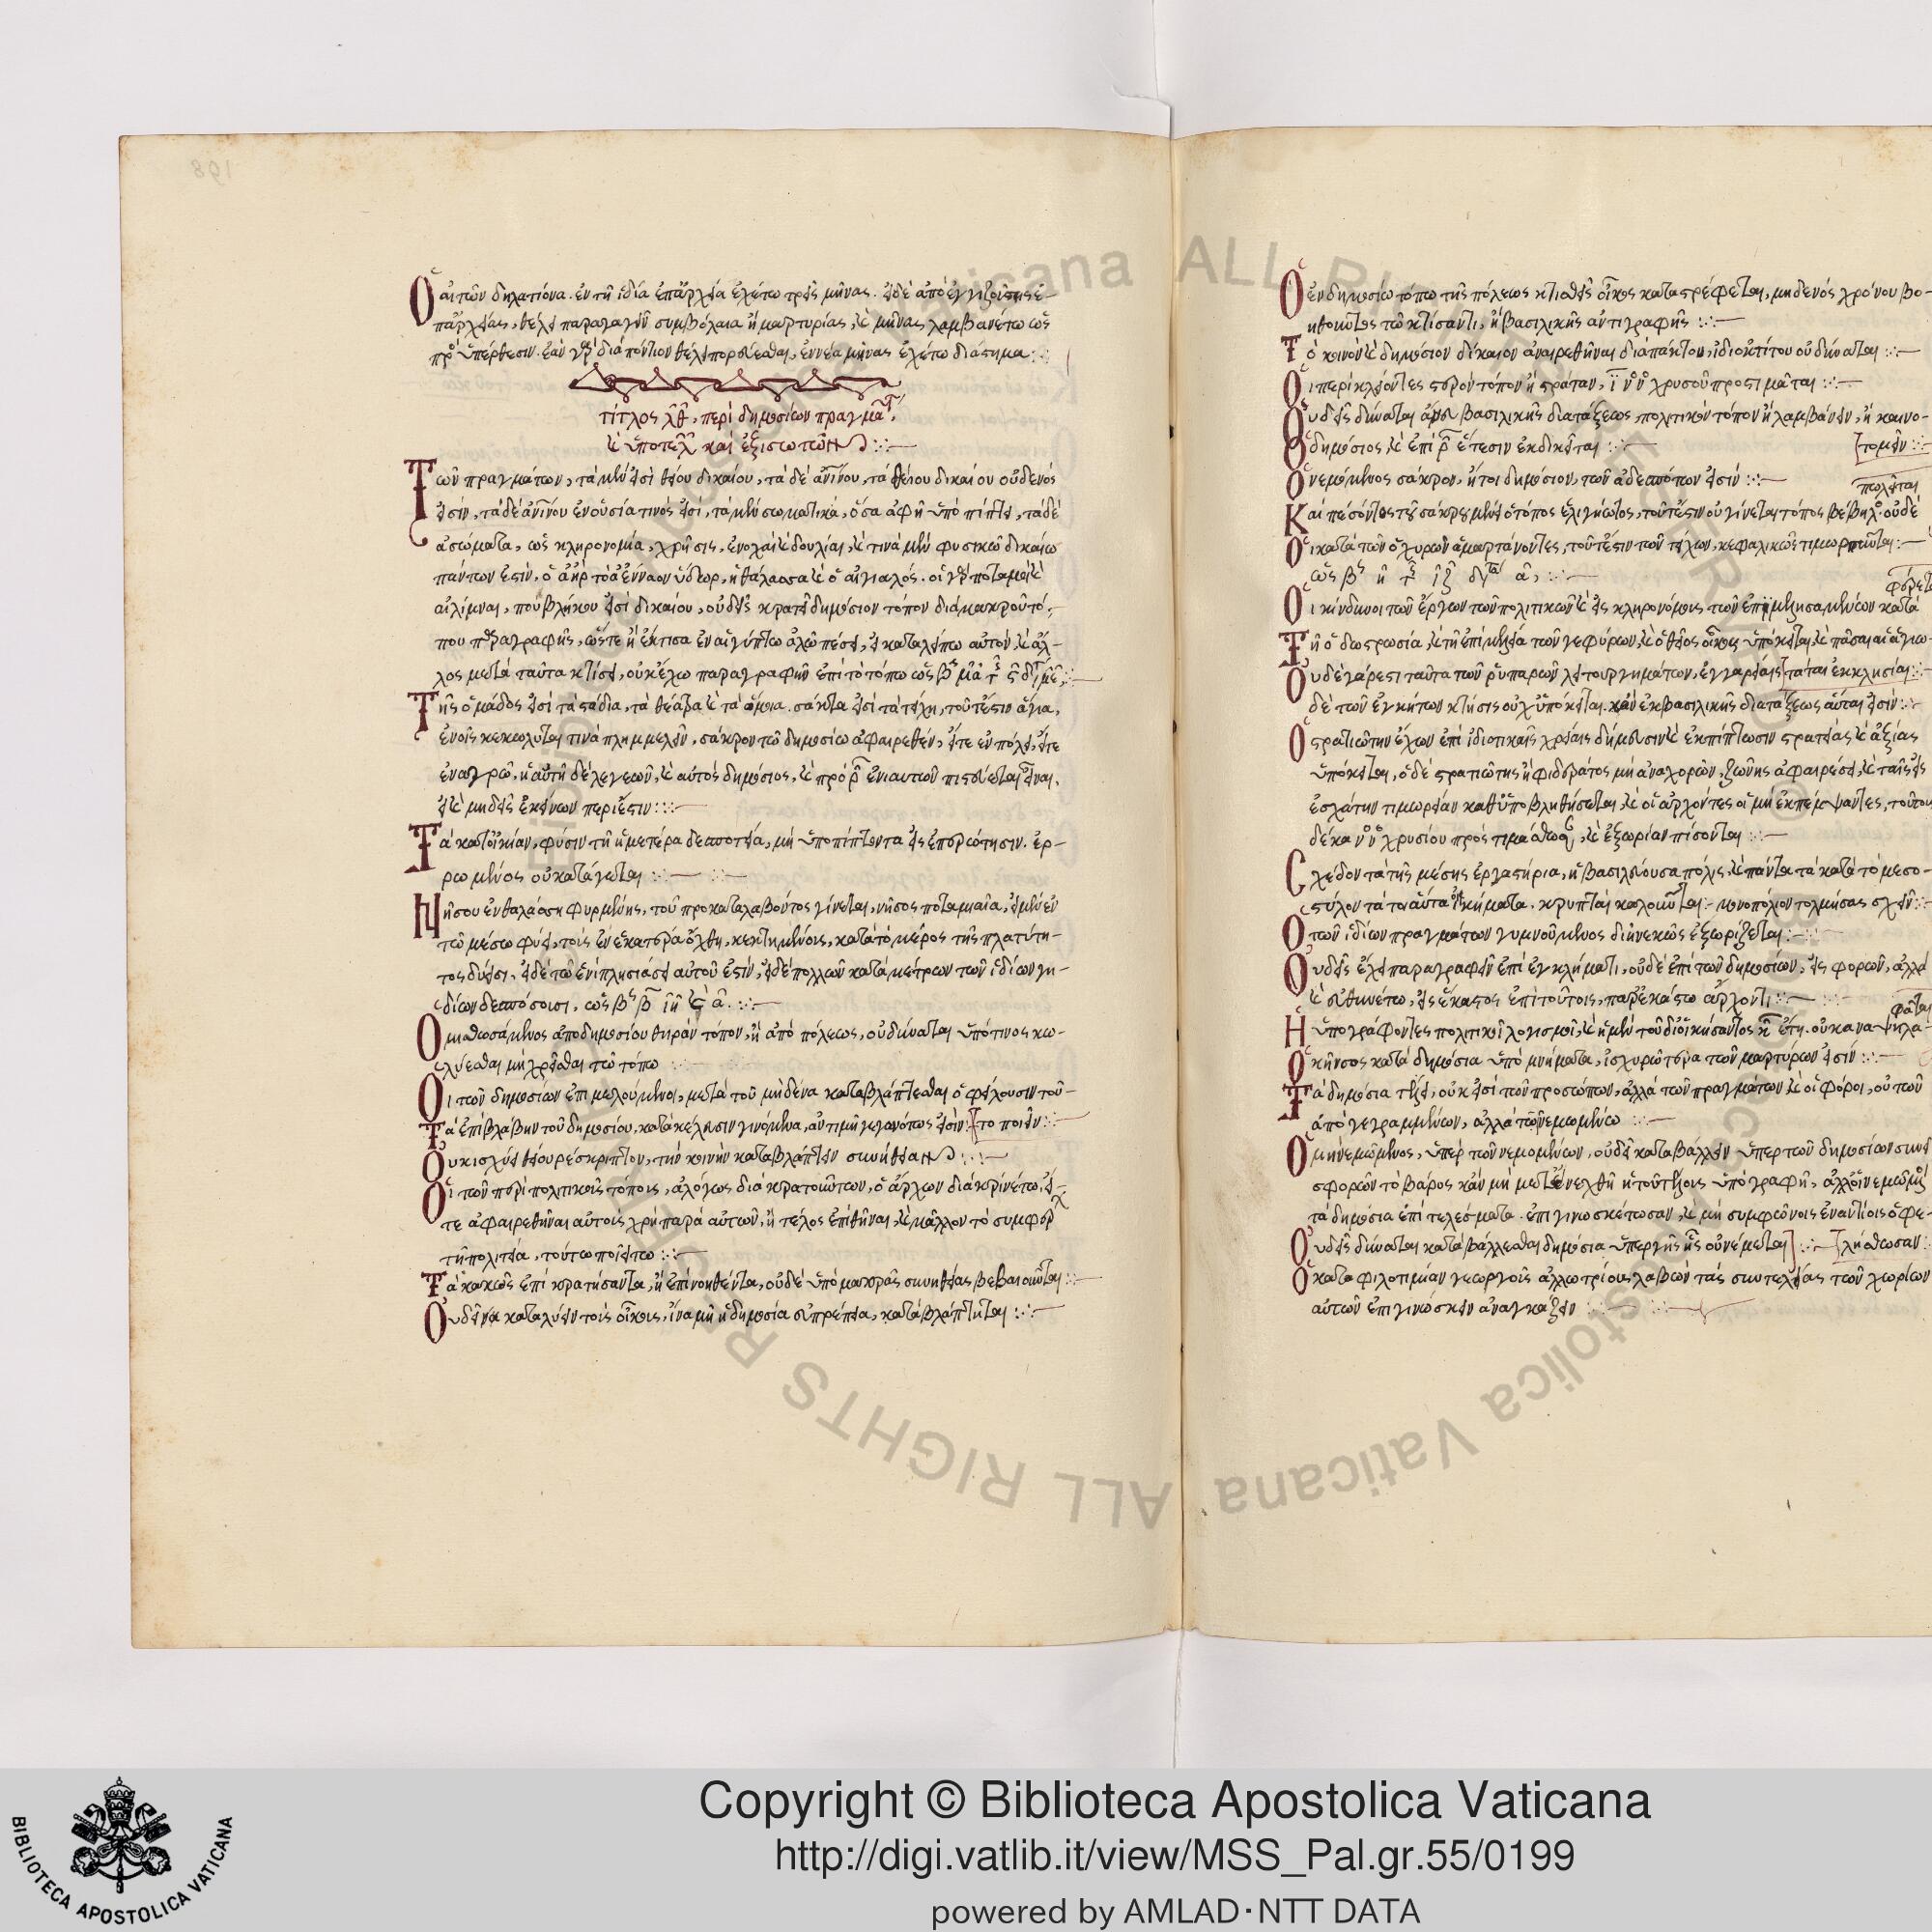 Ὁ αἰτῶν δηλατίονα. ἐν τῇ ἰδίᾳ ἐπαρχείᾳ ἐχέτω τρεῖς μῆνας. εἰ δὲ ἀπὸ
παρχείας, θέλει παραγαγεῖν συμβόλαια ἢ μαρτυρίας, μῆνας λαμβανέτω
ὑπέρθεσιν. ἐὰν διαπόντιον θέλει πορεύεσθαι, ἐννέα μῆνας ἐχέτω διάστημα
τίτλος λθ, περὶ δημοσίων πραγμάτ
καὶ ἐξισωτῶν
Τῶν πραγμάτων, τὰ μὲν εἰσὶ θείου δικαίου, τὰ δὲ ἀνίνου, τὰ θείου δικαίου οὐδενός
εἰσίν, τὰ δὲ ἀνίνου ἐν οὐσίᾳ τινὸς εἰσί, τὰ μὲν σωματικά, ὅσα ἀφῇ ὑποπίπτει, τὰ δὲ
ἀσώματα, ὡς κληρονομία, χρῆσις, ἐνοχαὶ καὶ δουλεῖαι, καὶ τινὰ μὲν φυσικῷ δικαίῳ
πάντων ἐστίν, ὁ ἀὴρ τὸ ἀένναον ὕδωρ, ἡ θάλασσα καὶ ὁ αἰγιαλός. οἱ ποταμοὶ καὶ
αἱ λίμναι, πουβλήκου εἰσὶ δικαίου, οὐδεὶς κρατεῖ δημόσιον τόπον διὰ μακροῦ τό-
που παραγραφῆς, ὥστε ἢ ἔκτισα ἐν αἰγύπτῳ
λος μετὰ ταῦτα κτίσει, οὐκ ἔχω παραγραφὴν ἐπὶ τὸ τόπω
Τῆς ὁμάδος εἰσὶ τὰ στάδια, τὰ θέατρα καὶ τὰ ὅμοια. σάκτα εἰσὶ τὰ τείχη, τουτέστιν ἅγια,
ἐν οἷς κεκώλυται τινὰ πλημμελεῖν, σάκρον τῷ δημοσίῳ ἀφαιρεθέν, εἴτε ἐν πόλει, εἴτε
ἐν ἀγρῷ, καὶ αὐτὸς δημόσιος, καὶ πρὸ ρ ἐνιαυτῶν πιστεύεται εἶναι,
εἰ καὶ μηδεὶς ἐκείνων περίεστιν
Τὰ κατοικίαν, φύσιν τῇ ἡμετέρα δεσποτεία, μὴ ὑποπίπτοντα εἰς ἐπερώτησιν. ἐρ-
ρωμένος οὐ κατάγεται
Νήσου ἐν θαλάσσῃ φυρμένης, τοῦ προκαταλαβόντος γίνεται, νῆσος ποταμιαῖα, εἰ μὲν ἐν
τῷ μέσῳ φύει, τοῖς ἐν ἑκατέρα ὄχθῃ, κεκτημένοις, κατὰ τὸ μέρος τῆς πλατύτη-
τος δύεισι, εἰ δὲ τῷ ἑνὶ πλησιάσει αὐτοῦ ἐστίν, εἰ δὲ πολλῶν κατὰ μέτρων τῶν ἰδίων γη-
δίων δεσπόσοισι
Ὁ μισθωσάμενος ἀπὸ δημοσίου θηρᾶν τόπον, ἢ ἀπὸ πόλεως, οὐ δύναται ὑπό τινος κω-
λύεσθαι μὴ χρᾶσθαι τῷ τόπω
Οἱ τῶν δημοσίων ἐπιμελούμενοι, μετὰ τοῦ μηδένα καταβλάπτεσθαι ὀφείλουσιν τοῦ-
Τὰ ἐπὶ βλάβην τοῦ δημοσίου, κατὰ κέλευσιν γινόμενα, ἀντὶ μὴ γεγονότως εἰσίν [το ποιεῖν
Οὐκ ἰσχύει θεῖου ρεσκρίπτιον, τὴν κοινὴν καταβλάπτειν συνήθεια
Οἱ τῶν περὶ πολιτικοῖς τόποις, ἀλόγως διακρατούντων, ὁ ἄρχων διακρινέτω, εἴ-
τε ἀφαιρεθῆναι αὐτοῖς χρὴ παρὰ αὐτῶν, ἢ τέλος ἐπιθῆναι, καὶ μᾶλλον τὸ συμφορ
τῇ πολιτεία, τούτω ποιείτω
Τὰ κακῶς ἐπικρατήσαντα, ἢ ἐπινοηθέντα, οὐδὲ ὑπὸ μακρᾶς συνηθείας βεβαιοῦνται
Οὐδένα καταλύειν τοῖς οἴκοις, ἵνα μὴ ἡ δημοσία εὐπρέπεια, καταβλάπτηται
Ὁ ἐν δημοσίω τόπω τῆς πόλεως κτισθεὶς οἶκος καταστρέφεται, μηδενὸς χρόνου βο-
ηθοῦντος τῷ κτίσαντι, ἢ βασιλικῆς ἀντιγραφῆς
Τὸ κοινὸν καὶ δημόσιον δίκαιον ἀναιρεθῆναι διὰ πάκτου, ἰδιοκτίτου οὐ δύναται
Οἱ περικλείοντες στερρὸν τόπον ἢ στράταν, χρυσοῦ προστιμᾶται
Οὐδεὶς δύναται ἄνευ βασιλικῆς διατάξεως, πολιτικὸν τόπον ἢ λαμβάνειν, ἢ καινο-
δημόσιος, καὶ ἐπὶ ρ ἔτεσιν ἐκδικεῖται [τομεῖν
Ὁ νεμόμενος σάκρον, ἤτοι δημόσιον, τῶν ἀδεσπότων εἰσίν
πωλεῖται
Καὶ πεσόντος ὁ τόπος, τουτέστιν οὐ γίνεται τόπος βέβηλος. οὐδὲ
Οἱ κατὰ τῶν ὀχυρῶν ἁμαρτάνοντες, τουτέστιν τῶν τειχῶν, κεφαλικῶς τιμωροῦνται
Οἱ κίνδυνοι τῶν ἔργων τῶν πολιτικῶν καὶ εἰς κληρονόμοις τῶν κατὰ
Τῇ ὁδωστρωσία, καὶ τῇ ἐπιμελεία τῶν γεφύρων, καὶ ὁ θεῖος οἶκος ὑπόκειται, καὶ πᾶσαι αἱ ἁγιω-
Οὐδὲ γάρ ἐστι ταῦτα τῶν ῥυπαρῶν λειτουργημάτων [ταται ἐκκλησίαι
δὲ τῶν ἐγκήτων κτῆσις οὐχ ὑπόκειται. κἂν ἐκ βασιλικῆς διατάξεως αὗται εἰσίν
Ὁ στρατιώτην ἔχων ἐπὶ ἰδιοτικαῖς χρείαις δήμευσιν καὶ ἐκπίπτωσιν στρατείας καὶ ἀξίας
ὑπόκειται, ὁ δὲ στρατιώτης ἢ φιδεράτος μὴ ἀναχορῶν, ζώνης ἀφαιρέσει, καὶ ταῖς εἰς
ἐσχάτην τιμωρείαν καθυποβληθήσεται, καὶ οἱ ἄρχοντες οἱ μὴ ἐκπέμψαντες, τοῦτον
δέκα χρυσίου προστιμάσθωσαν, καὶ ἐξωρίαν πίσονται
Σχεδὸν τὰ τῆς μέσης ἐργαστήρια, ἡ βασιλεύουσα πόλις, καὶ πάντα τὰ κατὰ τὸ μεσο-
στύλον τὰ τοιαῦτα οἰκήματα. κρυπταὶ καλοῦνται. μονοπόλιον τολμήσας σχεῖν
Ὁ τῶν ἰδίων πραγμάτων γυμνούμενος διηνεκῶς ἐξωρίζεται
Οὐδεὶς ἔχει παραγραφεῖν ἐπὶ ἐγκλήματι, οὐδὲ ἐπὶ τῶν δημοσίων, εἰς φορῶν, ἀλλὰ
καὶ εὐθυνέτω, εἰς ἕκαστος ἐπὶ τούτοις, παρ᾽ ἑκάστω ἄρχοντι
Ἡ ὑπογράφοντες πολιτικοὶ λογισμοί, τοῦ διοικήσαντος κ ἔτη. οὐκ ἀναψηλα-
Ὁ κῆνσος κατὰ δημόσια ὑπομνήματα, ἰσχυρώτερα τῶν μαρτύρων εἰσίν
Τὰ δημόσια τέλει, οὐκ εἰσὶ τῶν προσώπων, ἀλλὰ τῶν πραγμάτων καὶ οἱ φόροι, οὐ τῶν
ἀπογεγραμμένων, ἀλλὰ τῶν νεμωμένω
Ὁ μὴ νεμώμενος, ὑπὲρ τῶν νεμομένων, οὐδὲ καταβάλλειν ὑπὲρ τῶν δημοσίων
σφορῶν τὸ βάρος κἂν μὴ μετενεχθῇ ἡ τούτοις ὑπογραφή, ἀλλ᾽ οἱ νεμώμενοι
τὰ δημόσια ἐπιτελέσματα. ἐπιγινωσκέτωσαν, καὶ μὴ συμφώνοις ἐναντίοις ὀφε-
Οὐδεὶς δύναται καταβάλλεσθαι δημόσια ὑπὲρ γῆς ἧς οὐ νέμεται [λησθωσαν
Ὁ κατὰ φιλοτιμίαν γεωργοῖς ἀλλωτρίους λαβὼν τὰς συντελείας τῶν χωρίων
αὐτῶν ἐπιγινώσκειν ἀναγκάζειν
Copyright © Biblioteca Apostolica Vaticana
http://digi.vatlib.it/view/MSS_Pal.gr.55/0199
powered by AMLAD·NTT DATA
BIBLIOTECA APOSTOLICA VATICANA